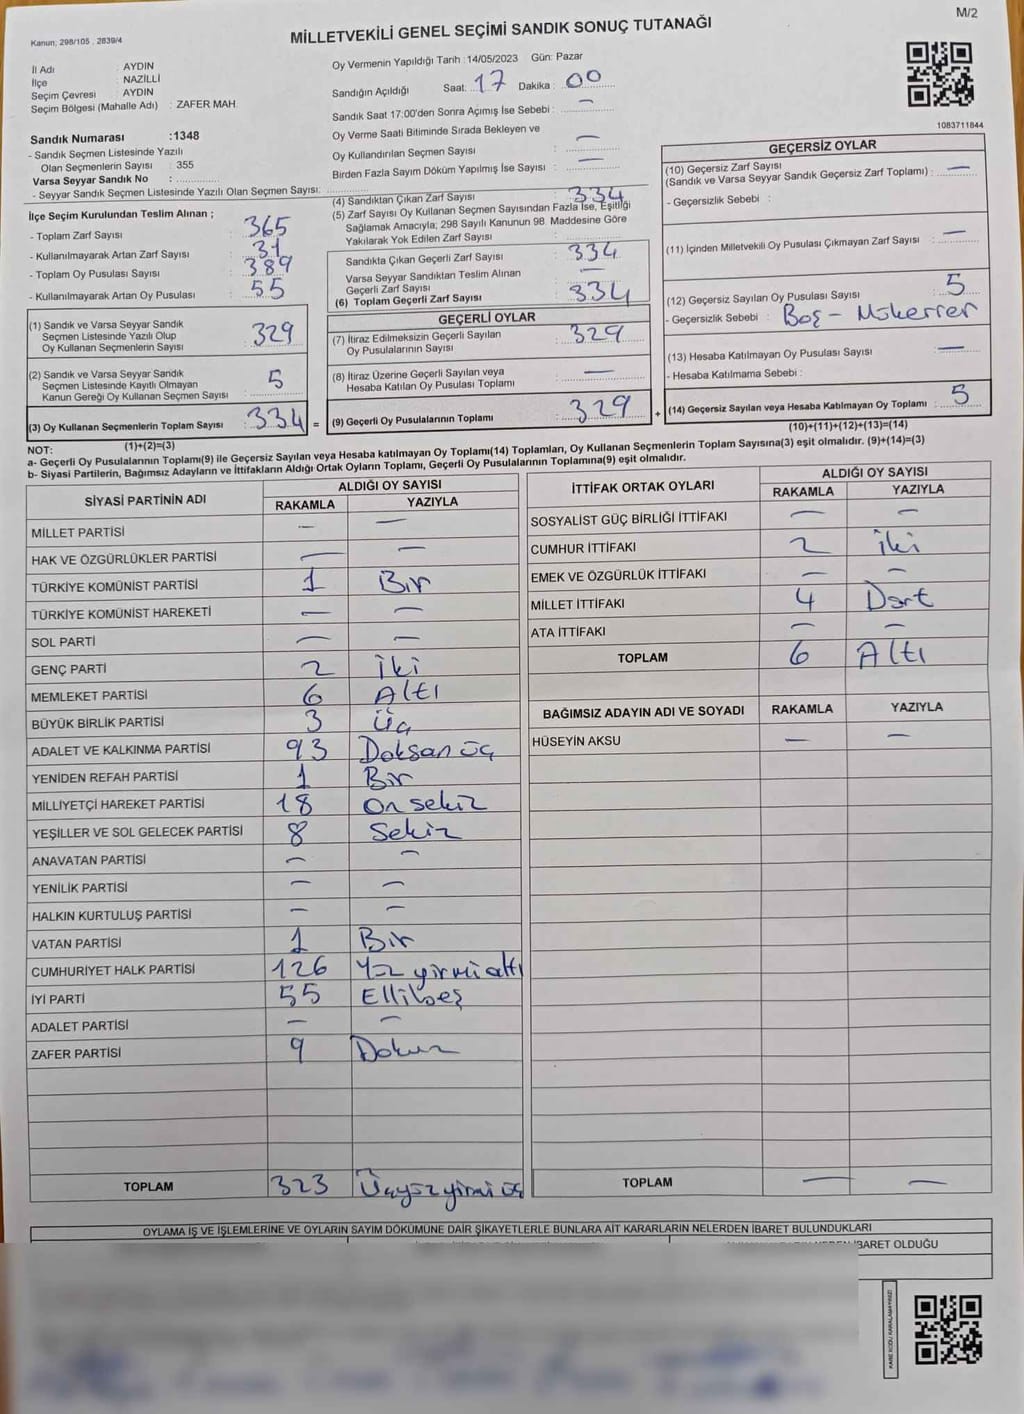 M/2
Kanun, 298/105 , 2839/4
MİLLETVEKİLİ GENEL SEÇİMİ SANDIK SONUÇ TUTANAĞI
İl Adı : AYDIN
İlçe : NAZİLLİ
Seçim Çevresi : AYDIN
Seçim Bölgesi (Mahalle Adı) : ZAFER MAH.
Sandık Numarası :1348
- Sandık Seçmen Listesinde Yazılı
Olan Seçmenlerin Sayısı : 355
Varsa Seyyar Sandık No : ..............
- Seyyar Sandık Seçmen Listesinde Yazılı Olan Seçmen Sayısı: ..............
Oy Vermenin Yapıldığı Tarih :14/05/2023 Gün: Pazar
Sandığın Açıldığı Saat: 17 Dakika : 00
Sandık Saat 17:00'den Sonra Açımış İse Sebebi : —
Oy Verme Saati Bitiminde Sırada Bekleyen ve
Oy Kullandırılan Seçmen Sayısı : —
Birden Fazla Sayım Döküm Yapılmış İse Sayısı : —
1083711844
İlçe Seçim Kurulundan Teslim Alınan ;
- Toplam Zarf Sayısı : 365
- Kullanılmayarak Artan Zarf Sayısı : 31
- Toplam Oy Pusulası Sayısı : 389
- Kullanılmayarak Artan Oy Pusulası : 55
(1) Sandık ve Varsa Seyyar Sandık
Seçmen Listesinde Yazılı Olup
Oy Kullanan Seçmenlerin Sayısı : 329
(2) Sandık ve Varsa Seyyar Sandık
Seçmen Listesinde Kayıtlı Olmayan
Kanun Gereği Oy Kullanan Seçmen Sayısı : 5
(3) Oy Kullanan Seçmenlerin Toplam Sayısı : 334 =
(1)+(2)=(3)
(4) Sandıktan Çıkan Zarf Sayısı : 334
(5) Zarf Sayısı Oy Kullanan Seçmen Sayısından Fazla İse, Eşitliği
Sağlamak Amacıyla; 298 Sayılı Kanunun 98. Maddesine Göre
Yakılarak Yok Edilen Zarf Sayısı :
Sandıkta Çıkan Geçerli Zarf Sayısı : 334
Varsa Seyyar Sandıktan Teslim Alınan
Geçerli Zarf Sayısı : —
(6) Toplam Geçerli Zarf Sayısı : 334
GEÇERLİ OYLAR
(7) İtiraz Edilmeksizin Geçerli Sayılan
Oy Pusulalarının Sayısı : 329
(8) İtiraz Üzerine Geçerli Sayılan veya
Hesaba Katılan Oy Pusulası Toplamı : —
(9) Geçerli Oy Pusulalarının Toplamı : 329 +
GEÇERSİZ OYLAR
(10) Geçersiz Zarf Sayısı
(Sandık ve Varsa Seyyar Sandık Geçersiz Zarf Toplamı) : —
- Geçersizlik Sebebi :
(11) İçinden Milletvekili Oy Pusulası Çıkmayan Zarf Sayısı : —
(12) Geçersiz Sayılan Oy Pusulası Sayısı : 5
- Geçersizlik Sebebi : Boş - Mükerrer
(13) Hesaba Katılmayan Oy Pusulası Sayısı : —
- Hesaba Katılmama Sebebi :
(14) Geçersiz Sayılan veya Hesaba Katılmayan Oy Toplamı : 5
(10)+(11)+(12)+(13)=(14)
NOT:
a- Geçerli Oy Pusulalarının Toplamı(9) ile Geçersiz Sayılan veya Hesaba katılmayan Oy Toplamı(14) Toplamları, Oy Kullanan Seçmenlerin Toplam Sayısına(3) eşit olmalıdır. (9)+(14)=(3)
b- Siyasi Partilerin, Bağımsız Adayların ve İttifakların Aldığı Ortak Oyların Toplamı, Geçerli Oy Pusulalarının Toplamına(9) eşit olmalıdır.
SİYASİ PARTİNİN ADI ALDIĞI OY SAYISI
RAKAMLA YAZIYLA
MİLLET PARTİSİ — —
HAK VE ÖZGÜRLÜKLER PARTİSİ — —
TÜRKİYE KOMÜNİST PARTİSİ 1 Bir
TÜRKİYE KOMÜNİST HAREKETİ — —
SOL PARTİ — —
GENÇ PARTİ 2 İki
MEMLEKET PARTİSİ 6 Altı
BÜYÜK BİRLİK PARTİSİ 3 Üç
ADALET VE KALKINMA PARTİSİ 93 Doksan üç
YENİDEN REFAH PARTİSİ 1 Bir
MİLLİYETÇİ HAREKET PARTİSİ 18 On sekiz
YEŞİLLER VE SOL GELECEK PARTİSİ 8 Sekiz
ANAVATAN PARTİSİ — —
YENİLİK PARTİSİ — —
HALKIN KURTULUŞ PARTİSİ — —
VATAN PARTİSİ 1 Bir
CUMHURİYET HALK PARTİSİ 126 Yüz yirmi altı
İYİ PARTİ 55 Ellibeş
ADALET PARTİSİ — —
ZAFER PARTİSİ 9 Dokuz
TOPLAM 323 Üçyüz yirmi üç
İTTİFAK ORTAK OYLARI ALDIĞI OY SAYISI
RAKAMLA YAZIYLA
SOSYALİST GÜÇ BİRLİĞİ İTTİFAKI — —
CUMHUR İTTİFAKI 2 İki
EMEK VE ÖZGÜRLÜK İTTİFAKI — —
MİLLET İTTİFAKI 4 Dört
ATA İTTİFAKI — —
TOPLAM 6 Altı
BAĞIMSIZ ADAYIN ADI VE SOYADI RAKAMLA YAZIYLA
HÜSEYİN AKSU — —
TOPLAM — —
OYLAMA İŞ VE İŞLEMLERİNE VE OYLARIN SAYIM DÖKÜMÜNE DAİR ŞİKAYETLERLE BUNLARA AİT KARARLARIN NELERDEN İBARET BULUNDUKLARI
İBARET OLDUĞU